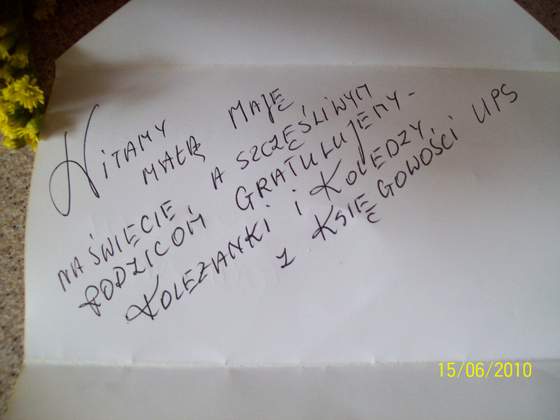 WITAMY MAŁĄ MAJĘ
NA ŚWIECIE, A SZCZĘŚLIWYM
RODZICOM GRATULUJEMY-
KOLEŻANKI i KOLEDZY
Z KSIĘGOWOŚCI UPS
15/06/2010